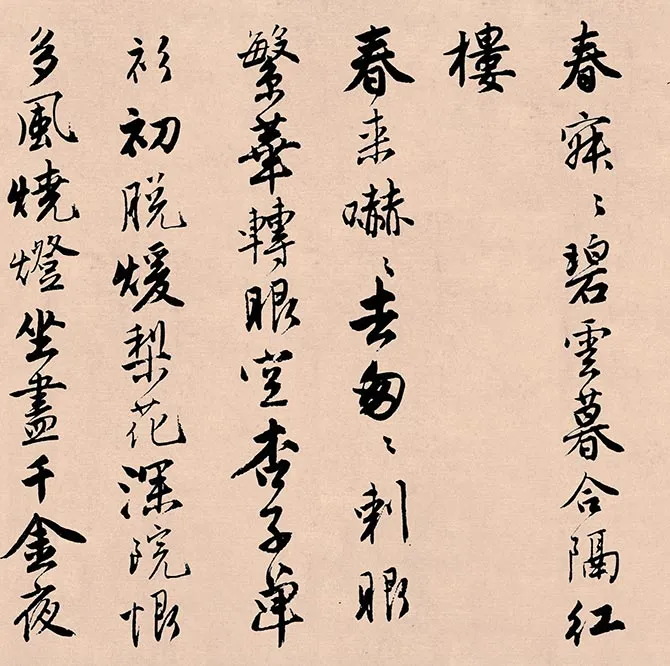 春寂〻碧雲暮合隔紅
樓
春来嚇〻去匆〻刺眼
繁華轉眼空杏子單
衫初脫煖梨花深院恨
多風燒燈坐盡千金夜